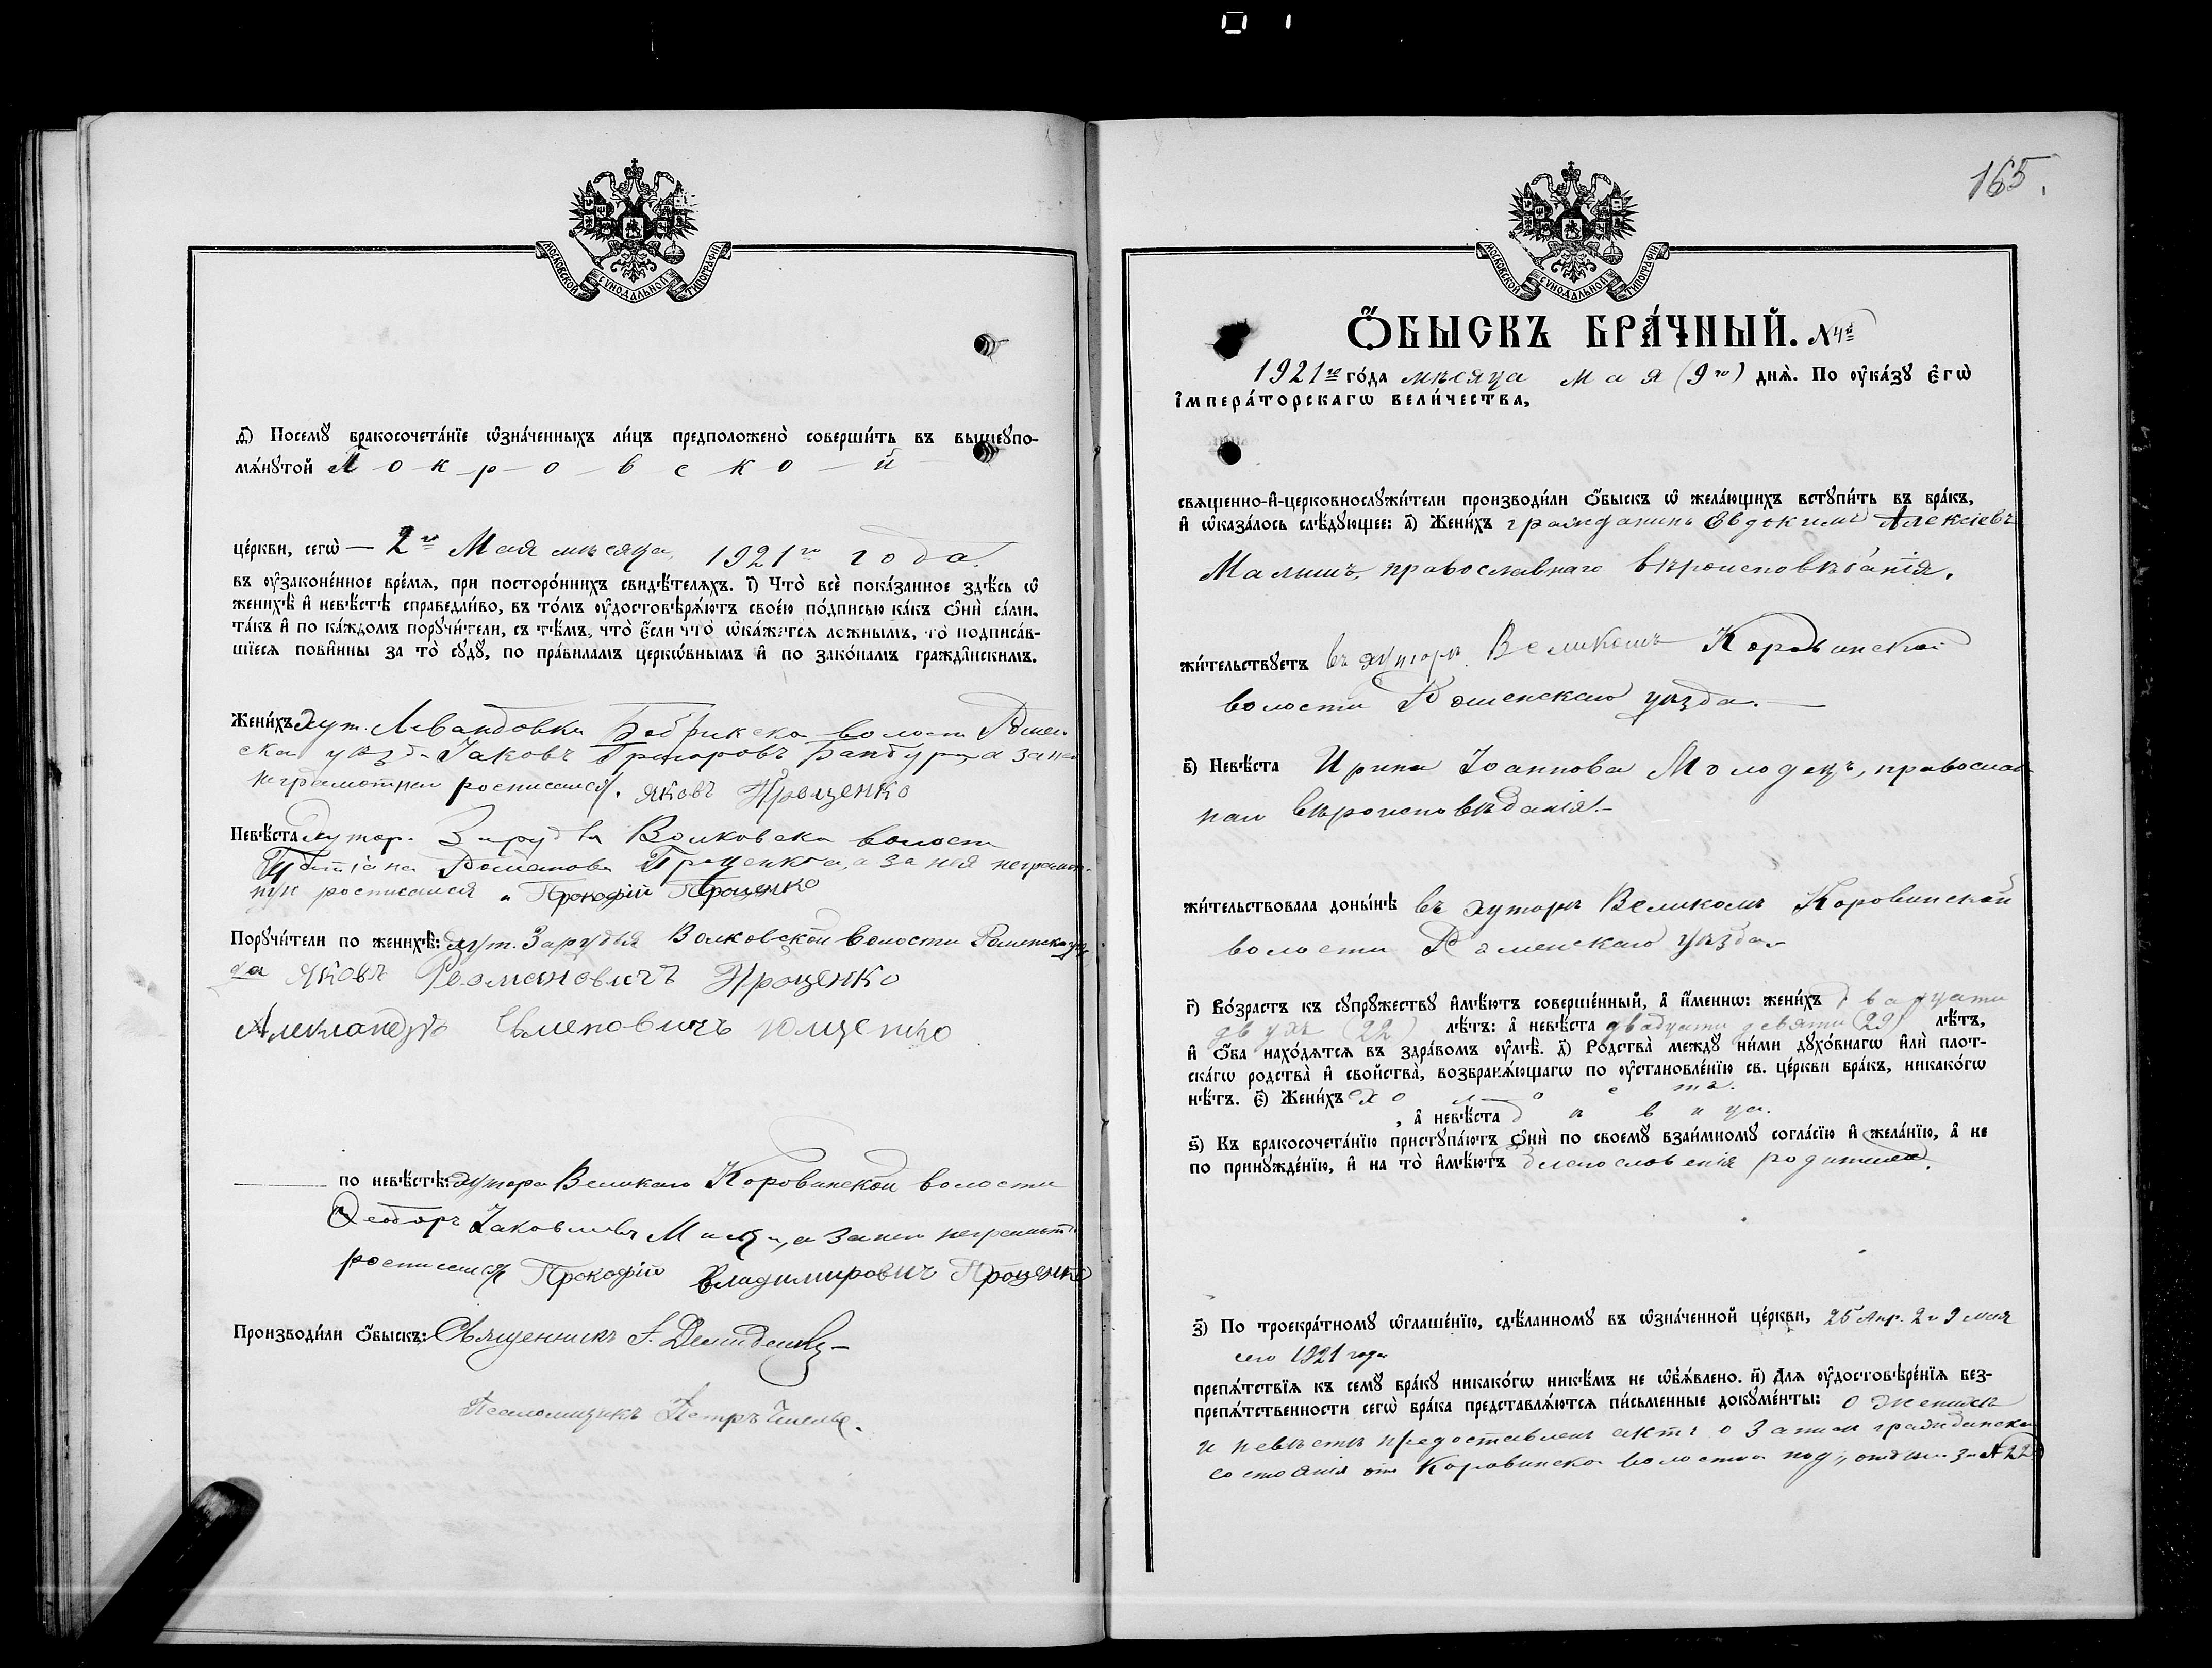 МОСКОВСКОЙ СѴНОДАЛЬНОЙ ТИПОГРАФІИ
ѳ҃) Посемꙋ бракосочета́нїе ѡ҆зна́ченныхъ ли́цъ предположено̀ соверши́ть въ вышеꙋпо-
мѧ́нꙋтой Покровской
це́ркви, сегѡ̀ — 2го Мая месяца 1921го года.
въ ᲂу҆законе́нное вре́мѧ, при посторо́ннихъ свидѣ́телѧхъ. і҃) Что̀ всѐ пока́занное здѣ́сь ѡ҆
женихѣ̀ и҆ невѣ́стѣ справедли́во, въ то́мъ ᲂу҆достовѣрѧ́ютъ свое́ю по́дписью ка́къ ѻ҆нѝ са́ми.
та́къ и҆ по ка́ждомъ порꙋчи́тели, съ тѣ́мъ, что̀ є҆́сли что̀ ѡ҆ка́жетсѧ ложнымъ, то̀ подписа́в-
шїесѧ пови́нны за то̀ сꙋдꙋ̀, по пра́виламъ церко́внымъ и҆ по зако́намъ гражда́нскимъ.
Жени́хъ хут. Бобрикска волости Ромен
ска уезда Іаковъ Григоровъ Бандура а за него
неграмотнаго росписался. Яковъ Проценко
Невѣ́ста хутор. Зарудья Волковска волости
Романова Проценкова, а за нея неграмот-
ную росписался Прокофій Проценко
Порꙋчи́тели по женихѣ̀: хут. Зарудья Волковской волости Роменска уез
да Яковъ Романовичъ Проценко
Александръ Евменовичъ Ющенко
по невѣ́стѣ: хутора Великаго Коровинской волости
Ѳеодоръ Іаковлевъ а за него неграмотн.
росписался Прокофій Владимировичъ Проценко
Производи́ли ѻ҆́быскъ: Священникъ І.
Псаломщикъ Петръ
165.
МОСКОВСКОЙ СѴНОДАЛЬНОЙ ТИПОГРАФІИ
Ѻ҆́БЫСКЪ БРА́ЧНЫЙ. №4й
1921го го́да месяца Мая (9го) днѧ̀. По ᲂу҆ка́зꙋ є҆гѡ̀
і҆мпера́торскагѡ вели́чества,
свѧщенно-и҆-церковнослꙋжи́тели производи́ли ѻ҆́быскъ ѡ҆ жела́ющихъ встꙋпи́ть въ бра́къ,
и҆ ѡ҆каза́лось слѣ́дꙋющее: а҃) Жени́хъ гражданинъ Евдокимъ Алексіевъ
Малышъ, православнаго вероисповеданія.
жи́тельствꙋетъ въ хуторе Великомъ Коровинской
волости Роменскаго уезда. —
в҃) Невѣ́ста Ирина Іоаннова Молодецъ, православ-
наго вероисповеданія. —
жи́тельствовала доны́нѣ въ хуторе Великомъ Коровинской
волости Роменскаго уезда. —
г҃) Во́зрастъ къ сꙋпрꙋ́жествꙋ и҆мѣ́ютъ соверше́нный, а҆ и҆́менно: жени́хъ двадцати
двухъ (22) лѣ́тъ: а҆ невѣ́ста двадцати девяти (29) лѣ́тъ,
и҆ ѻ҆́ба нахо́дѧтсѧ въ здра́вомъ ᲂу҆мѣ̀. д҃) Родства̀ междꙋ ни́ми дꙋхо́внагѡ и҆лѝ плот-
ска́гѡ родства̀ и҆ свойства̀, возбранѧ́ющагѡ по ᲂу҆становле́нїю св. це́ркви бра́къ, никако́гѡ
нѣ́тъ. є҃) Жени́хъ холостъ.
, а҆ невѣ́ста девица.
ѕ҃) Къ бракосочета́нїю пристꙋпа́ютъ ѻ҆нѝ по своемꙋ̀ взаи́мномꙋ согла́сїю и҆ жела́нїю, а҆ не
по принꙋжде́нїю, и҆ на то̀ и҆мѣ́ютъ благословенія родителей.
з҃) По троекра́тномꙋ ѡ҆глаше́нїю, сдѣ́ланномꙋ въ ѡ҆зна́ченной це́ркви, 25 Апр. 2 и 9 мая
сего 1921 года
препѧ́тствїѧ къ семꙋ̀ бра́кꙋ никако́гѡ никѣ́мъ не ѡ҆б̾ѧ́влено. и҃) Для ᲂу҆достовѣре́нїѧ без-
препѧ́тственности сегѡ̀ бра́ка представлѧ́ютсѧ пи́сьменные докꙋме́нты: о женихе
и невесте предоставленъ актъ о записи гражданска
состоянія отъ Коровинска волостна под. отдела за № 22